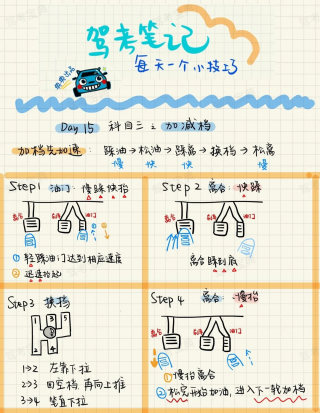 驾考笔记
每天一个小技巧
Day 15 科目三之加减档
加档先加速: 踩油→松油→踩离→换档→松离
慢 快 快 慢
Step1 油门: 慢踩快抬
离合 油门
① 轻踩油门达到相应速度
② 迅速抬起
Step 2 离合: 快踩
离合 油门
离合踩到底
Step3 换挡
1 3 5
2 4
1→2 左靠下拉
2→3 回空档 再向上推
3→4 笔直下拉
Step 4 离合: 慢抬
离合 油门
① 慢抬离合
② 松完开始加油, 进入下一轮加档